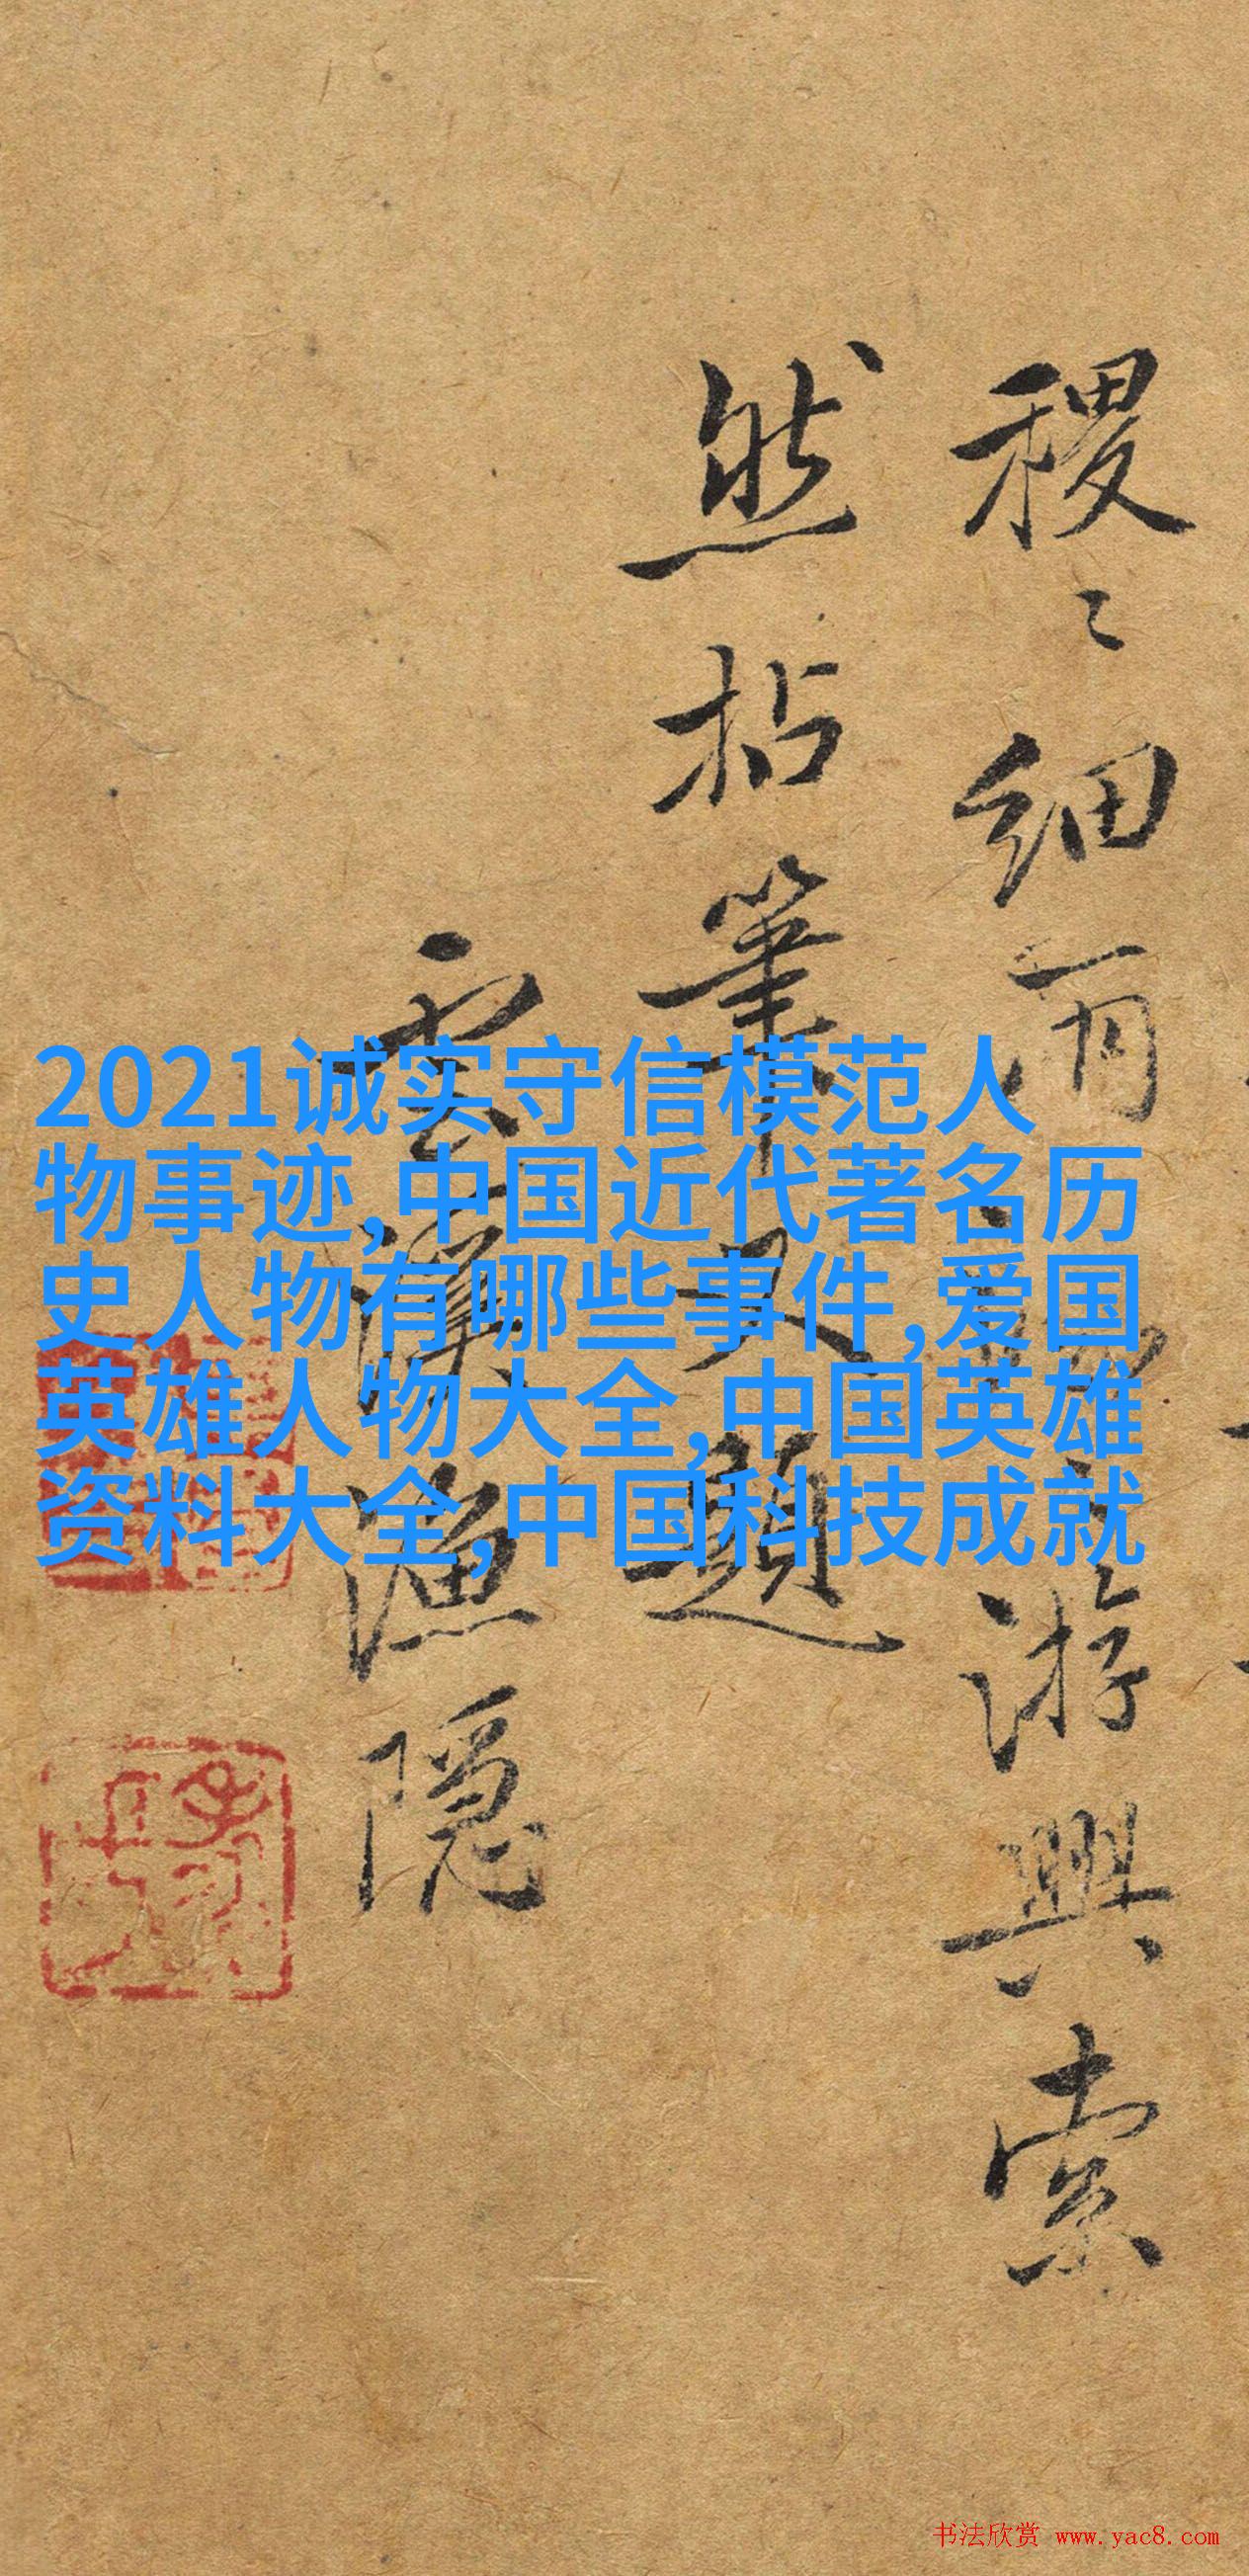 稷〻细雨
游興索
然拈筆又題
雲漢漁隱
2021诚实守信模范人
物事迹,中国近代著名历
史人物有哪些事件,爱国
英雄人物大全,中国英雄
资料大全,中国科技成就
书法欣赏 www.yac8.com